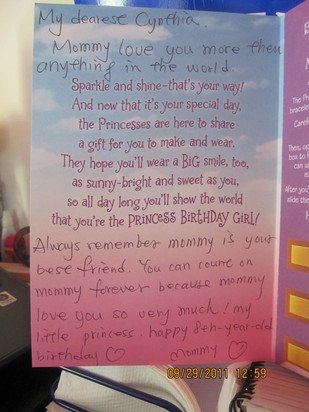 My dearest Cynthia.
Mommy love you more then
anything in the world.
Sparkle and shine-that's your way!
And now that it's your special day,
the Princesses are here to share
a gift for you to make and wear.
They hope you'll wear a BIG smile, too,
as sunny-bright and sweet as you,
so all day long you'll show the world
that you're the PRINCESS BIRTHDAY GIRL!
Always remember mommy is your
best friend. You can count on
mommy forever because mommy
love you so very much! my
little princess. happy 8th-year-old
birthday ♡ Mommy ♡
The Pr
bracele
Caref
Then, op
box to
can u
ea
After you'
slide the
09/29/2011 12:59